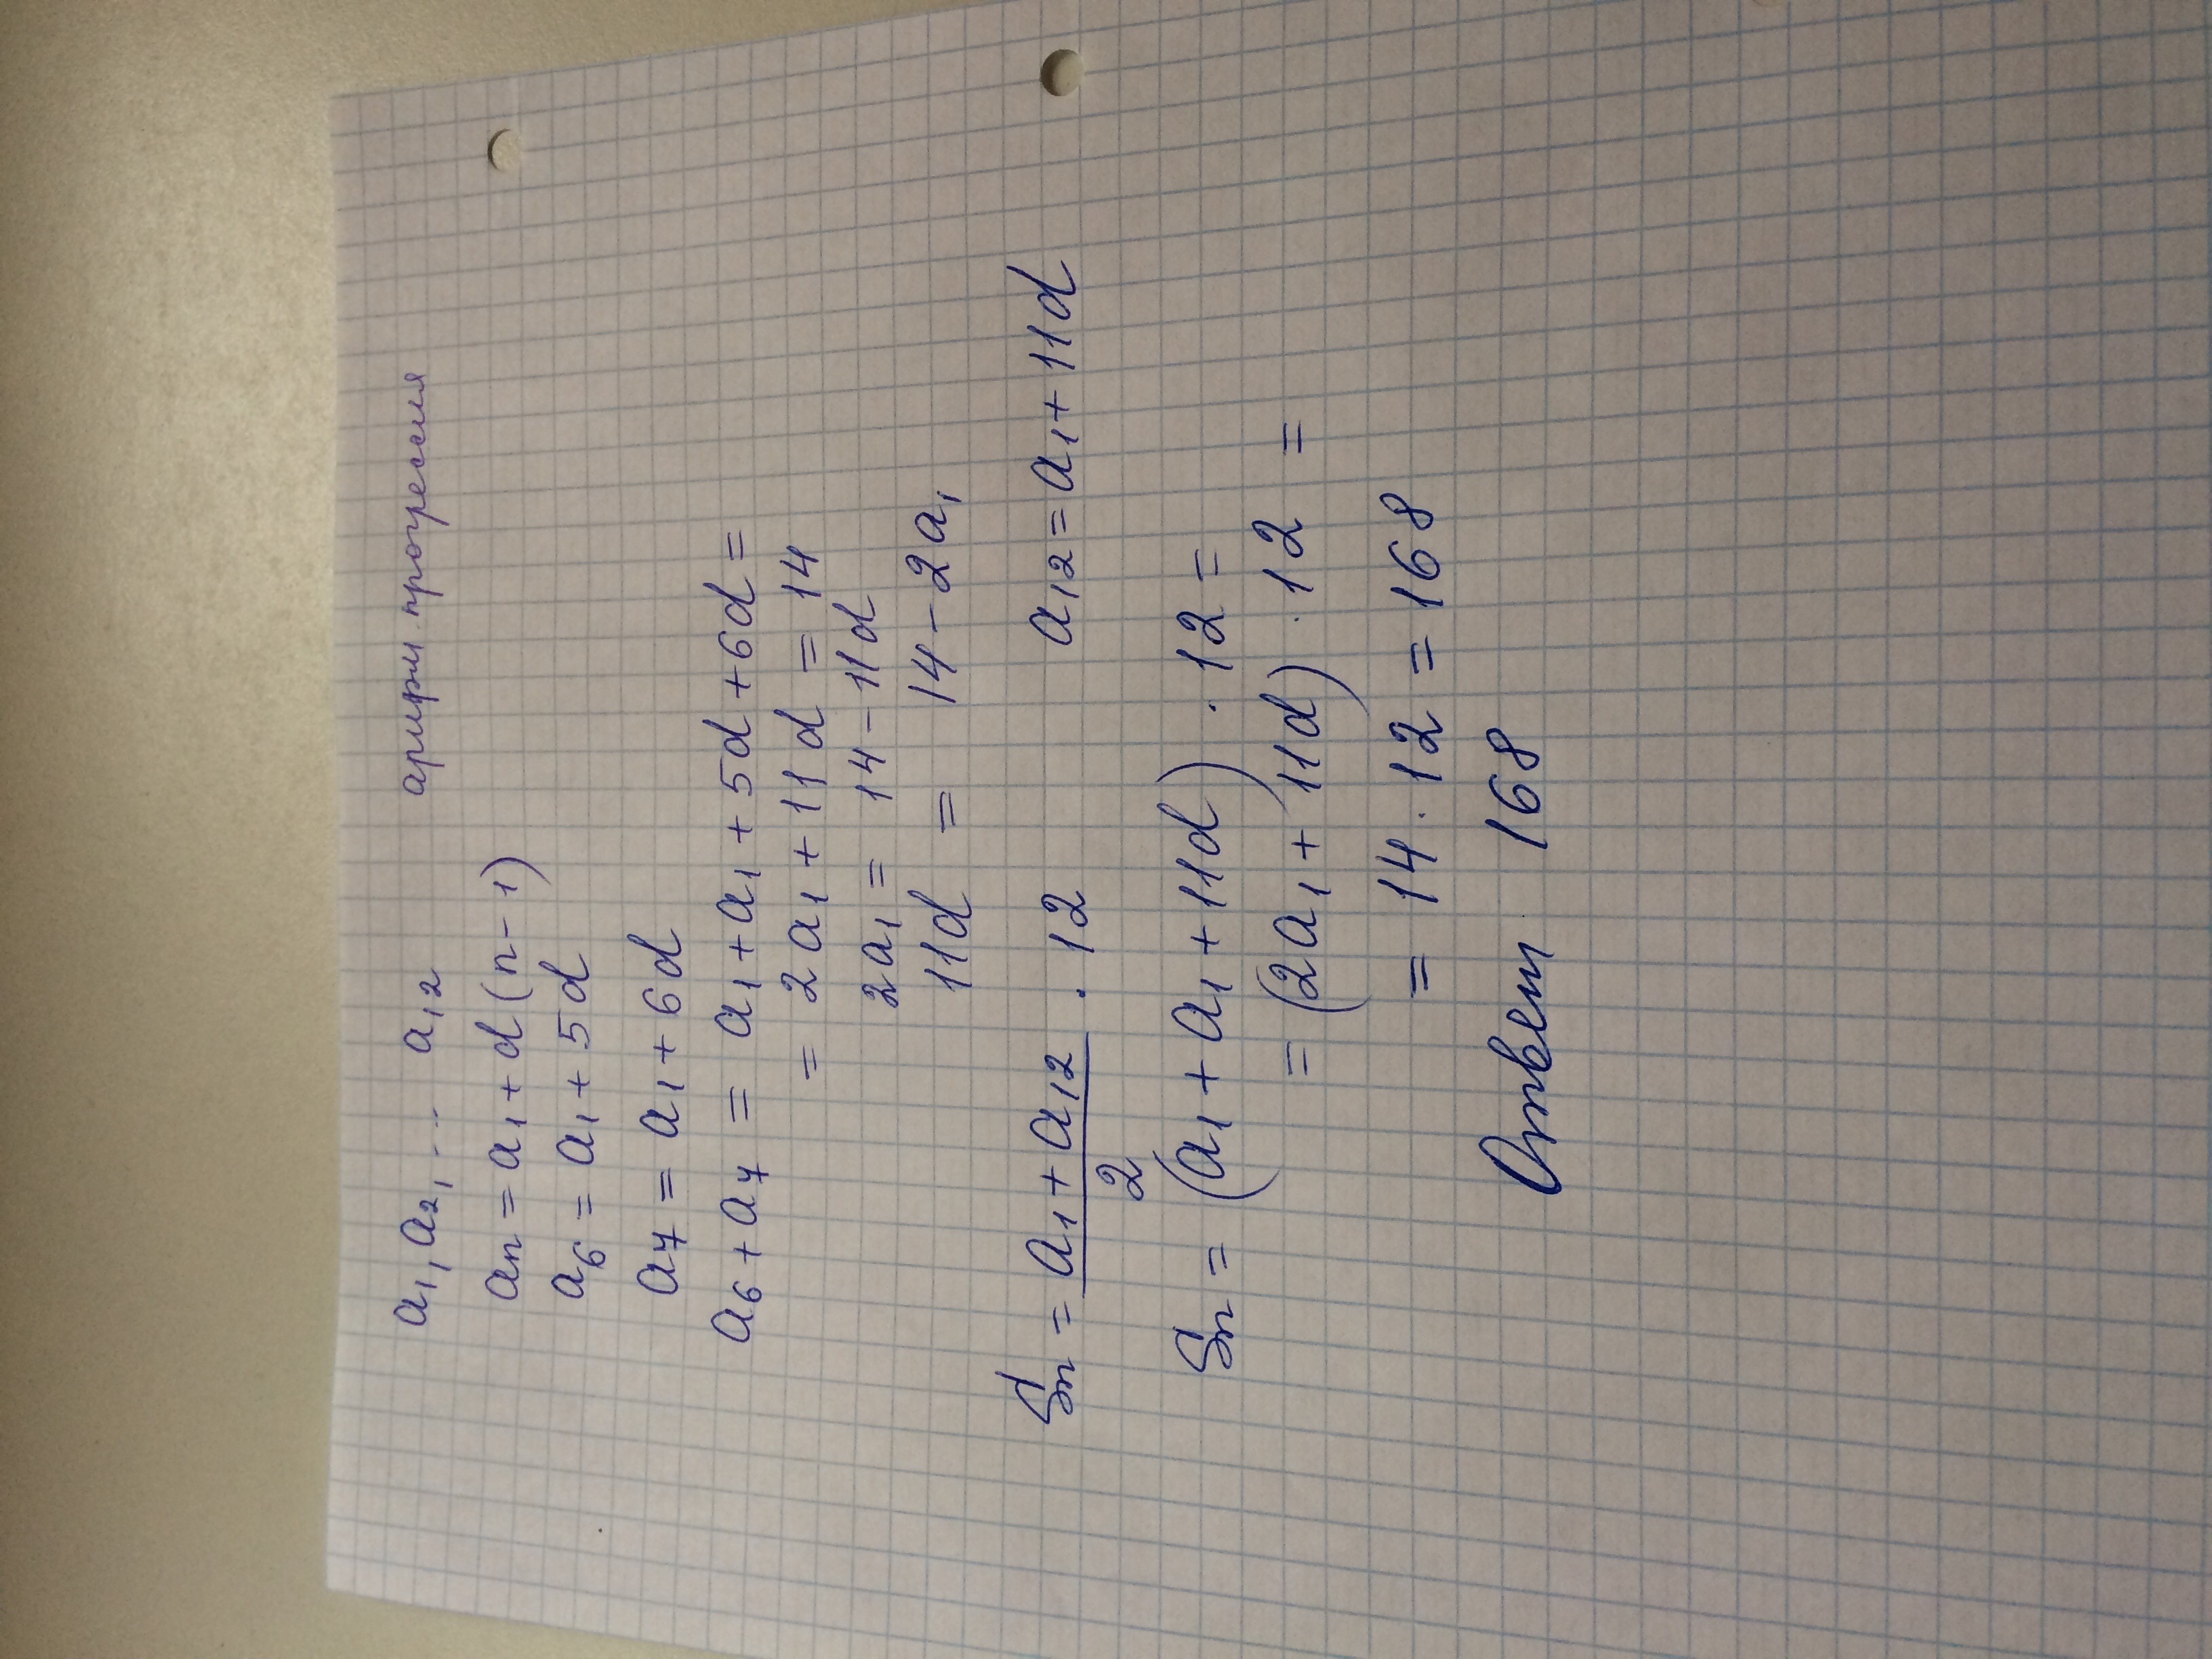 a₁, a₂, ... a₁₂ арифм прогрессия
aₙ = a₁ + d (n-1)
a₆ = a₁ + 5d
a₇ = a₁ + 6d
a₆ + a₇ = a₁ + a₁ + 5d + 6d =
= 2a₁ + 11d = 14
2a₁ = 14 - 11d
11d = 14 - 2a₁
Sₙ = (a₁ + a₁₂)/2 · 12 a₁₂ = a₁ + 11d
Sₙ = (a₁ + a₁ + 11d) · 12 =
= (2a₁ + 11d) · 12 =
= 14 · 12 = 168
Ответ 168